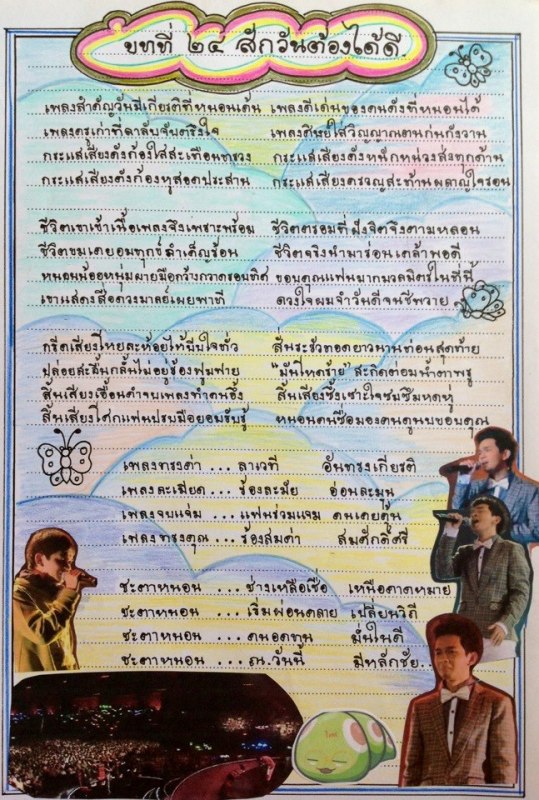 บทที่ ๒๔ สักวันต้องได้ดี
เพลงสำคัญวันมีเกียรติที่หนอนเด้น เพลงดีเด่นของคนดังที่หนอนได้
เพลงครูเก่าที่อาลัยจับตรึงใจ เพลงศิษย์ใส่วิญญาณตนก่นกังวาน
กระแสเสียงดังก้องใสสะเทือนทรวง กระแสเสียงดังหนักหน่วงส่งทุกด้าน
กระแสเสียงดังก้องหูสอดประสาน กระแสเสียงครวญสะท้านผลาญใจรอน
ชีวิตเขาเข้าเนื้อเพลงจึงเพราะพร้อม ชีวิตตรอมที่ฝังจิตจึงตามหลอน
ชีวิตขมเคยอมทุกข์ลำเค็ญร้อน ชีวิตจริงนำมาร่อนเคล้าพอดี
หนอนน้อยหนุ่มผายมือกว้างกวาดรอบทิศ ขอบคุณแฟนมากมวลมิตรในที่นี้
เขาแสดงสื่อดวงมาลย์เผยพาที ดวงใจผมจำวันดีจนชีพวาย
กรีดเสียงโหยละห้อยไห้บีบใจทั่ว สั่นระรัวทอดยาวนานท่อนสุดท้าย
ปล่อยสะอื้นกลั้นไม่อยู่ร้องฟูมฟาย "มันโหดร้าย" สะกิดต่อมน้ำตาพรู
สิ้นเสียงเอื้อนคำจบเพลงทำคนอึ้ง สิ้นเสียงซึ้งเซาะใจซมซึมหดหู่
สิ้นเสียงโศกแฟนปรบมือยอมรับรู้ หนอนคนซื่อมองคนดูนบขอบคุณ
เพลงทรงค่า ... ลาเวที อันทรงเกียรติ
เพลงละเมียด ... ร้องละมัย อ่อนละมุน
เพลงจบแจ่ม ... แฟนร่วมแจม คนเคยคุ้น
เพลงทรงคุณ ... ร้องสมค่า สมศักดิ์ศรี
ชะตาหนอน ... ช่างเหลือเชื่อ เหนือคาดหมาย
ชะตาหนอน ... เริ่มผ่อนคลาย เปลี่ยนวิถี
ชะตาหนอน ... คนอดทน มั่นในดี
ชะตาหนอน ... ณ.วันนี้ มีหลักชัย..